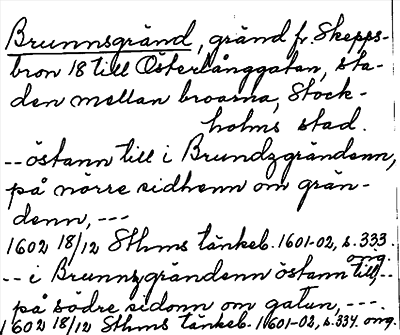 Brunnsgränd, gränd fr. Skepps-
bron 18 till Österlånggatan, sta-
den mellan broarna, Stock-
holms stad.
-- östann till i Brundzgrändenn,
på nörre sidhenn om grän-
denn, ---
1602 18/12 Sthms tänkeb. 1601-02, s. 333.
omg.
-- i Brunnzgrändenn östann till, --
på södre sidonn om gatun, ---.
1602 18/12 Sthms tänkeb. 1601-02, s. 334. omg.